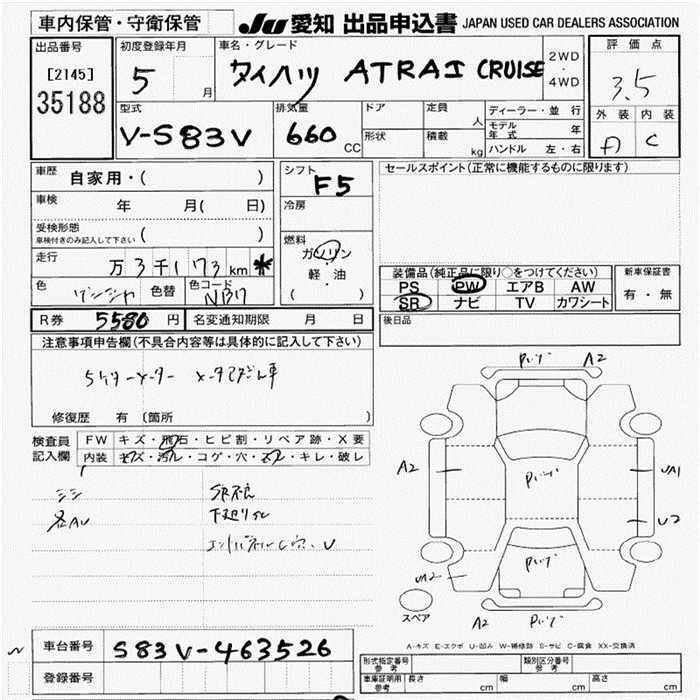 車内保管・守衛保管
JU 愛知 出品申込書 JAPAN USED CAR DEALERS ASSOCIATION
出品番号
[2145]
35188
初度登録年月
5 月
車名・グレード
ダイハツ ATRAI CRUISE
2WD
・
4WD
評価点
3.5
外装 内装
A C
型式
V-S83V
排気量
660 CC
ドア
形状
定員 人
積載 kg
ディーラー・並行
モデル年式 年
ハンドル 左・右
車歴 自家用・( )
車検 年 月( 日)
受検形態
車検付きのみ記入して下さい ( )
走行 万 3 千 173 km *
色
色替
色コード
シフト
F5
冷房
燃料
ガソリン
・
軽・油
( )
セールスポイント(正常に機能するものに限ります)
装備品(純正品に限り○をつけてください)
PS PW エアB AW
SR ナビ TV カワシート
新車保証書
有・無
後日品
R券 5580 円
名変通知期限 月 日
注意事項申告欄(不具合内容等は具体的に記入して下さい)
修復歴 有 (箇所 )
検査員
記入欄
FW キズ・飛石・ヒビ割・リペア跡・X要
内装 キズ・汚れ・コゲ・穴・スレ・キレ・破レ
A2
A2
UA1
U2
UA2
A2
スペア
A-キズ E-エクボ U-凹み W-補修跡 S-サビ C-腐食 XX-交換済
車台番号 S83V-463526
登録番号
形式指定番号
参考
類別区分番号
参考
車庫証明用
参考
長さ cm 幅 cm 高さ cm